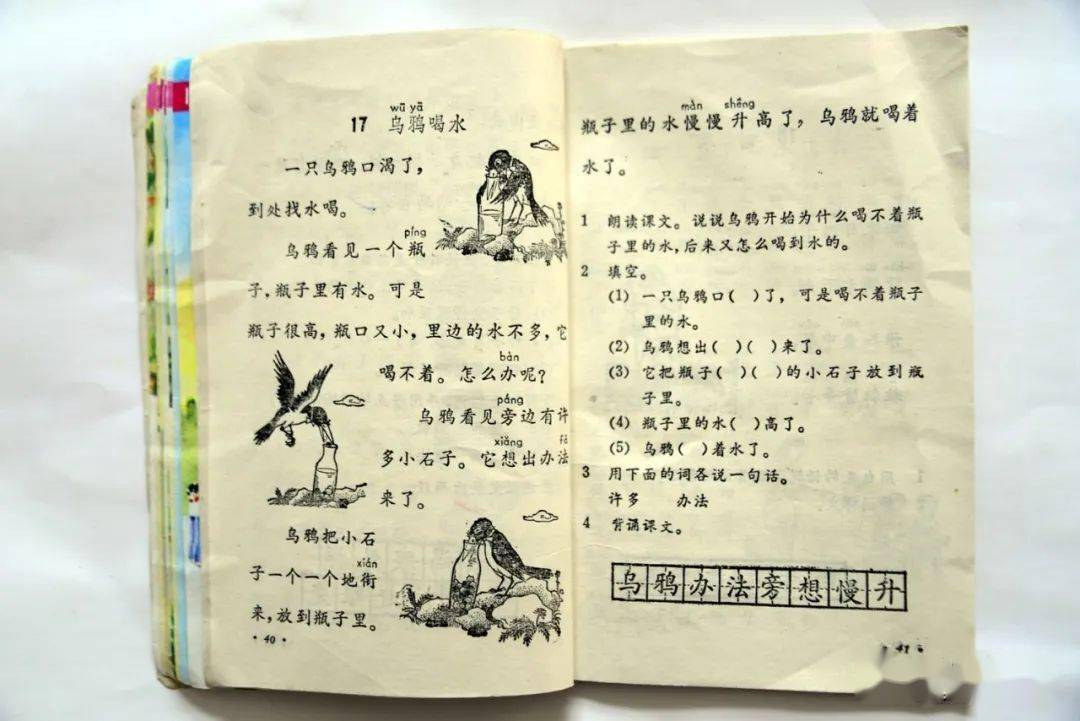 wū yā
17 乌鸦喝水
一只乌鸦口渴了，
到处找水喝。
píng
乌鸦看见一个瓶
子，瓶子里有水。可是
瓶子很高，瓶口又小，里边的水不多，它
bàn
喝不着。怎么办呢？
páng
乌鸦看见旁边有许
xiǎng
多小石子。它想出办法
来了。
乌鸦把小石
xián
子一个一个地衔
来，放到瓶子里。
·40·
màn shēng
瓶子里的水慢慢升高了，乌鸦就喝着
水了。
1 朗读课文。说说乌鸦开始为什么喝不着瓶
子里的水，后来又怎么喝到水的。
2 填空。
(1) 一只乌鸦口( )了，可是喝不着瓶子
里的水。
(2) 乌鸦想出( )( )来了。
(3) 它把瓶子( )( )的小石子放到瓶
子里。
(4) 瓶子里的水( )高了。
(5) 乌鸦( )着水了。
3 用下面的词各说一句话。
许多 办法
4 背诵课文。
乌鸦办法旁想慢升
41